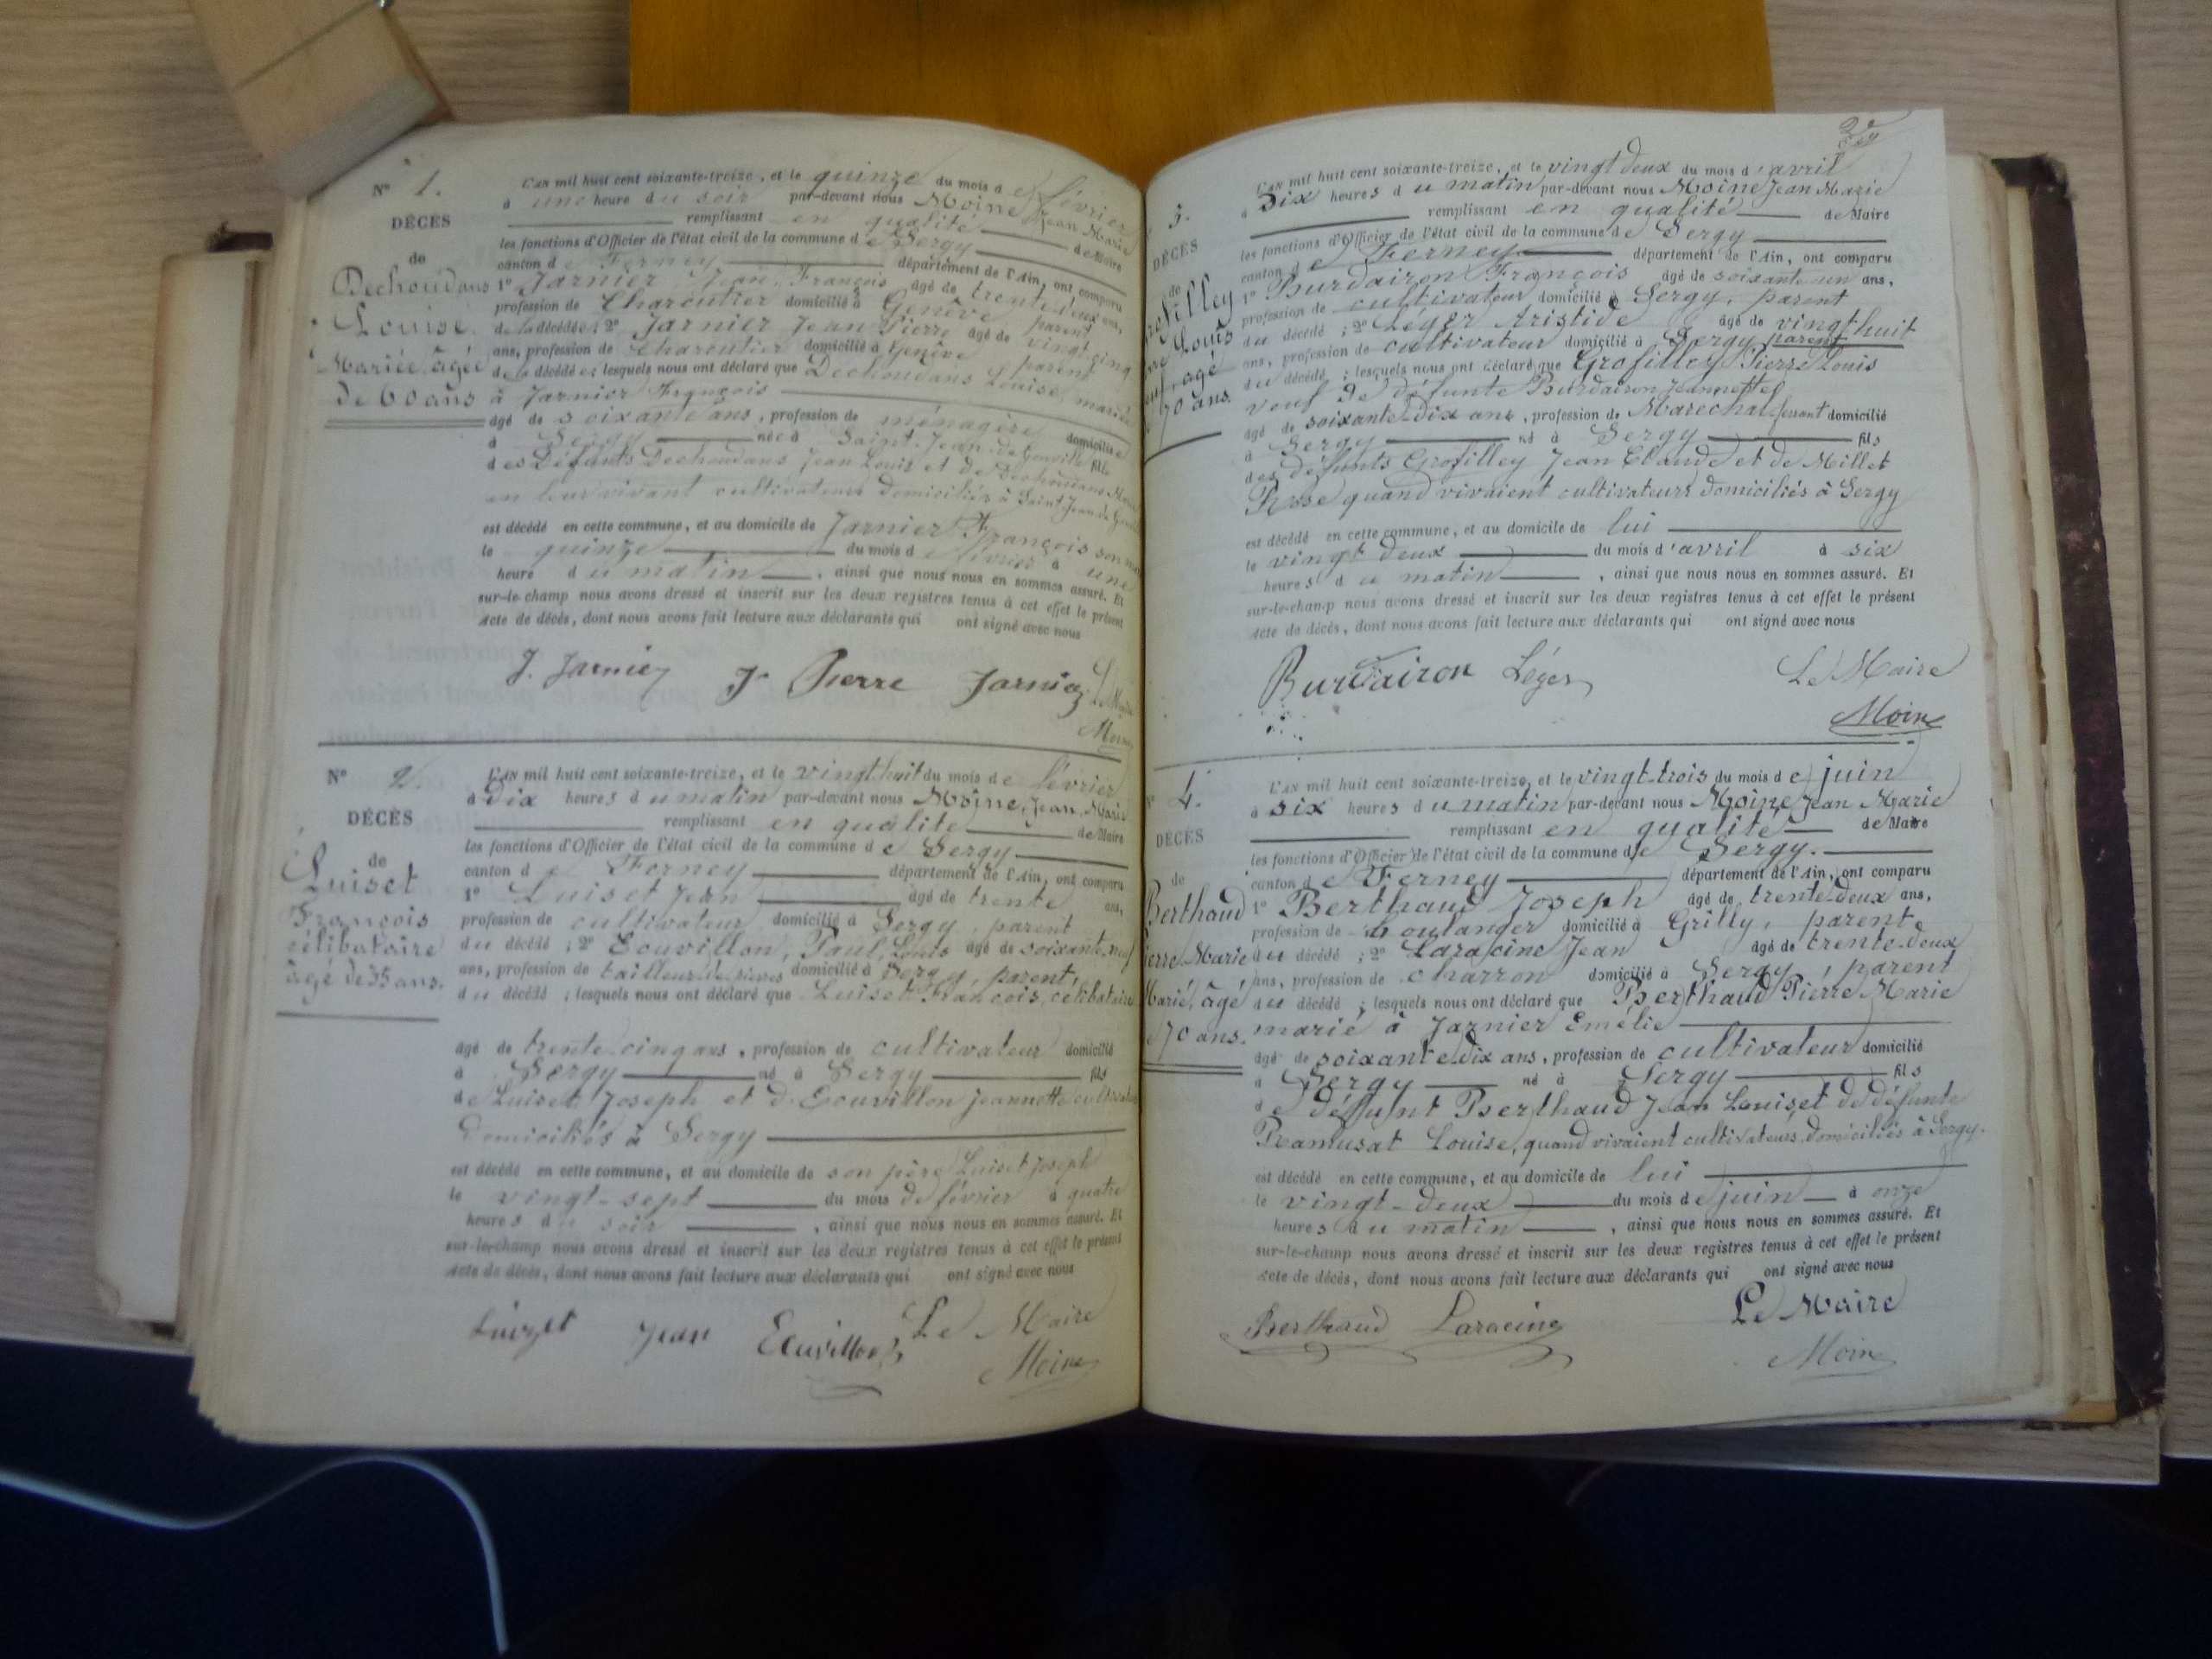 N° 1.
DÉCÈS
de
Dechoudans
Louise
Mariée, âgée
de 60 ans
L'AN mil huit cent soixante-treize, et le quinze du mois de février
à une heure du soir par-devant nous Moine Jean Marie
remplissant en qualité de Maire
les fonctions d'Officier de l'état civil de la commune de Sergy
canton de Ferney département de l'Ain, ont comparu
1° Jarnier Jean François âgé de trente deux ans,
profession de Charentier domicilié à Genêve parent
de la décédée ; 2° Jarnier Jean Pierre âgé de vingt cinq
ans, profession de Charentier domicilié à Genêve parent
de la décédée ; lesquels nous ont déclaré que Dechoudans Louise, mariée
à Jarnier François
âgé de soixante ans, profession de ménagère domiciliée
à Sergy née à Saint-Jean-de-Gonville fille
des Défunts Dechoudans Jean Louis et de Dechoudans
en leur vivant cultivateurs domiciliés à Saint Jean de
est décédé en cette commune, et au domicile de Jarnier François son
le quinze du mois de février à une
heure du matin, ainsi que nous nous en sommes assuré. Et
sur-le-champ nous avons dressé et inscrit sur les deux registres tenus à cet effet le présent
Acte de décès, dont nous avons fait lecture aux déclarants qui ont signé avec nous
J. Jarnier J. Pierre Jarnier Le Maire
Moine
N° 2.
DÉCÈS
de
Luiset
François
célibataire
âgé de 35 ans.
L'AN mil huit cent soixante-treize, et le vingt huit du mois de février
à dix heures du matin par-devant nous Moine, Jean Marie
remplissant en qualité de Maire
les fonctions d'Officier de l'état civil de la commune de Sergy
canton de Ferney département de l'Ain, ont comparu
1° Luiset Jean âgé de trente ans,
profession de cultivateur domicilié à Sergy, parent
du décédé ; 2° Ecuvillon, Paul, Louis âgé de soixante neuf
ans, profession de tailleur de pierres domicilié à Sergy, parent,
du décédé ; lesquels nous ont déclaré que Luiset François, célibataire
âgé de trente-cinq ans, profession de cultivateur domicilié
à Sergy né à Sergy fils
de Luiset Joseph et d'Ecuvillon Jeannette cultivateurs
domiciliés à Sergy
est décédé en cette commune, et au domicile de son père Luiset Joseph
le vingt-sept du mois de février à quatre
heures du soir, ainsi que nous nous en sommes assuré. Et
sur-le-champ nous avons dressé et inscrit sur les deux registres tenus à cet effet le présent
Acte de décès, dont nous avons fait lecture aux déclarants qui ont signé avec nous
Luizet Jean Ecuvillon Le Maire
Moine
3.
DÉCÈS
de
L'AN mil huit cent soixante-treize, et le vingt deux du mois d'avril
à Six heures du matin par-devant nous Moine Jean Marie
remplissant en qualité de Maire
les fonctions d'Officier de l'état civil de la commune de Sergy
canton de Ferney département de l'Ain, ont comparu
1° Burdairon François âgé de soixante un ans,
profession de cultivateur domicilié à Sergy, parent
du décédé ; 2° Léger Aristide âgé de vingt huit
ans, profession de cultivateur domicilié à Sergy parent
du décédé ; lesquels nous ont déclaré que Grofilley Pierre Louis
veuf de défunte Burdairon Jeannette
âgé de soixante-dix ans, profession de Marechal ferrant domicilié
à Sergy né à Sergy fils
des défunts Grofilley Jean Claude et de Millet
Rose quand vivaient cultivateurs domiciliés à Sergy
est décédé en cette commune, et au domicile de lui
le vingt deux du mois d'avril à six
heures du matin, ainsi que nous nous en sommes assuré. Et
sur-le-champ nous avons dressé et inscrit sur les deux registres tenus à cet effet le présent
Acte de décès, dont nous avons fait lecture aux déclarants qui ont signé avec nous
Burdairon Léger Le Maire
Moine
N° 4.
DÉCÈS
de
Berthaud
Pierre Marie
Marié, âgé
70 ans.
L'AN mil huit cent soixante-treize, et le vingt-trois du mois de juin
à six heures du matin par-devant nous Moine Jean Marie
remplissant en qualité de Maire
les fonctions d'Officier de l'état civil de la commune de Sergy.
canton de Ferney département de l'Ain, ont comparu
1° Berthaud Joseph âgé de trente-deux ans,
profession de boulanger domicilié à Grilly, parent
du décédé ; 2° Laracine Jean âgé de trente-deux
ans, profession de charron domicilié à Sergy, parent
du décédé ; lesquels nous ont déclaré que Berthaud Pierre Marie
marié à Jarnier Emélie
âgé de soixante dix ans, profession de cultivateur domicilié
à Sergy né à Sergy fils
de défunt Berthaud Jean Louis et de défunte
Ramusat Louise, quand vivaient cultivateurs domiciliés à Sergy.
est décédé en cette commune, et au domicile de lui
le vingt-deux du mois de juin à onze
heures du matin, ainsi que nous nous en sommes assuré. Et
sur-le-champ nous avons dressé et inscrit sur les deux registres tenus à cet effet le présent
Acte de décès, dont nous avons fait lecture aux déclarants qui ont signé avec nous
Berthaud Laracine Le Maire
Moine